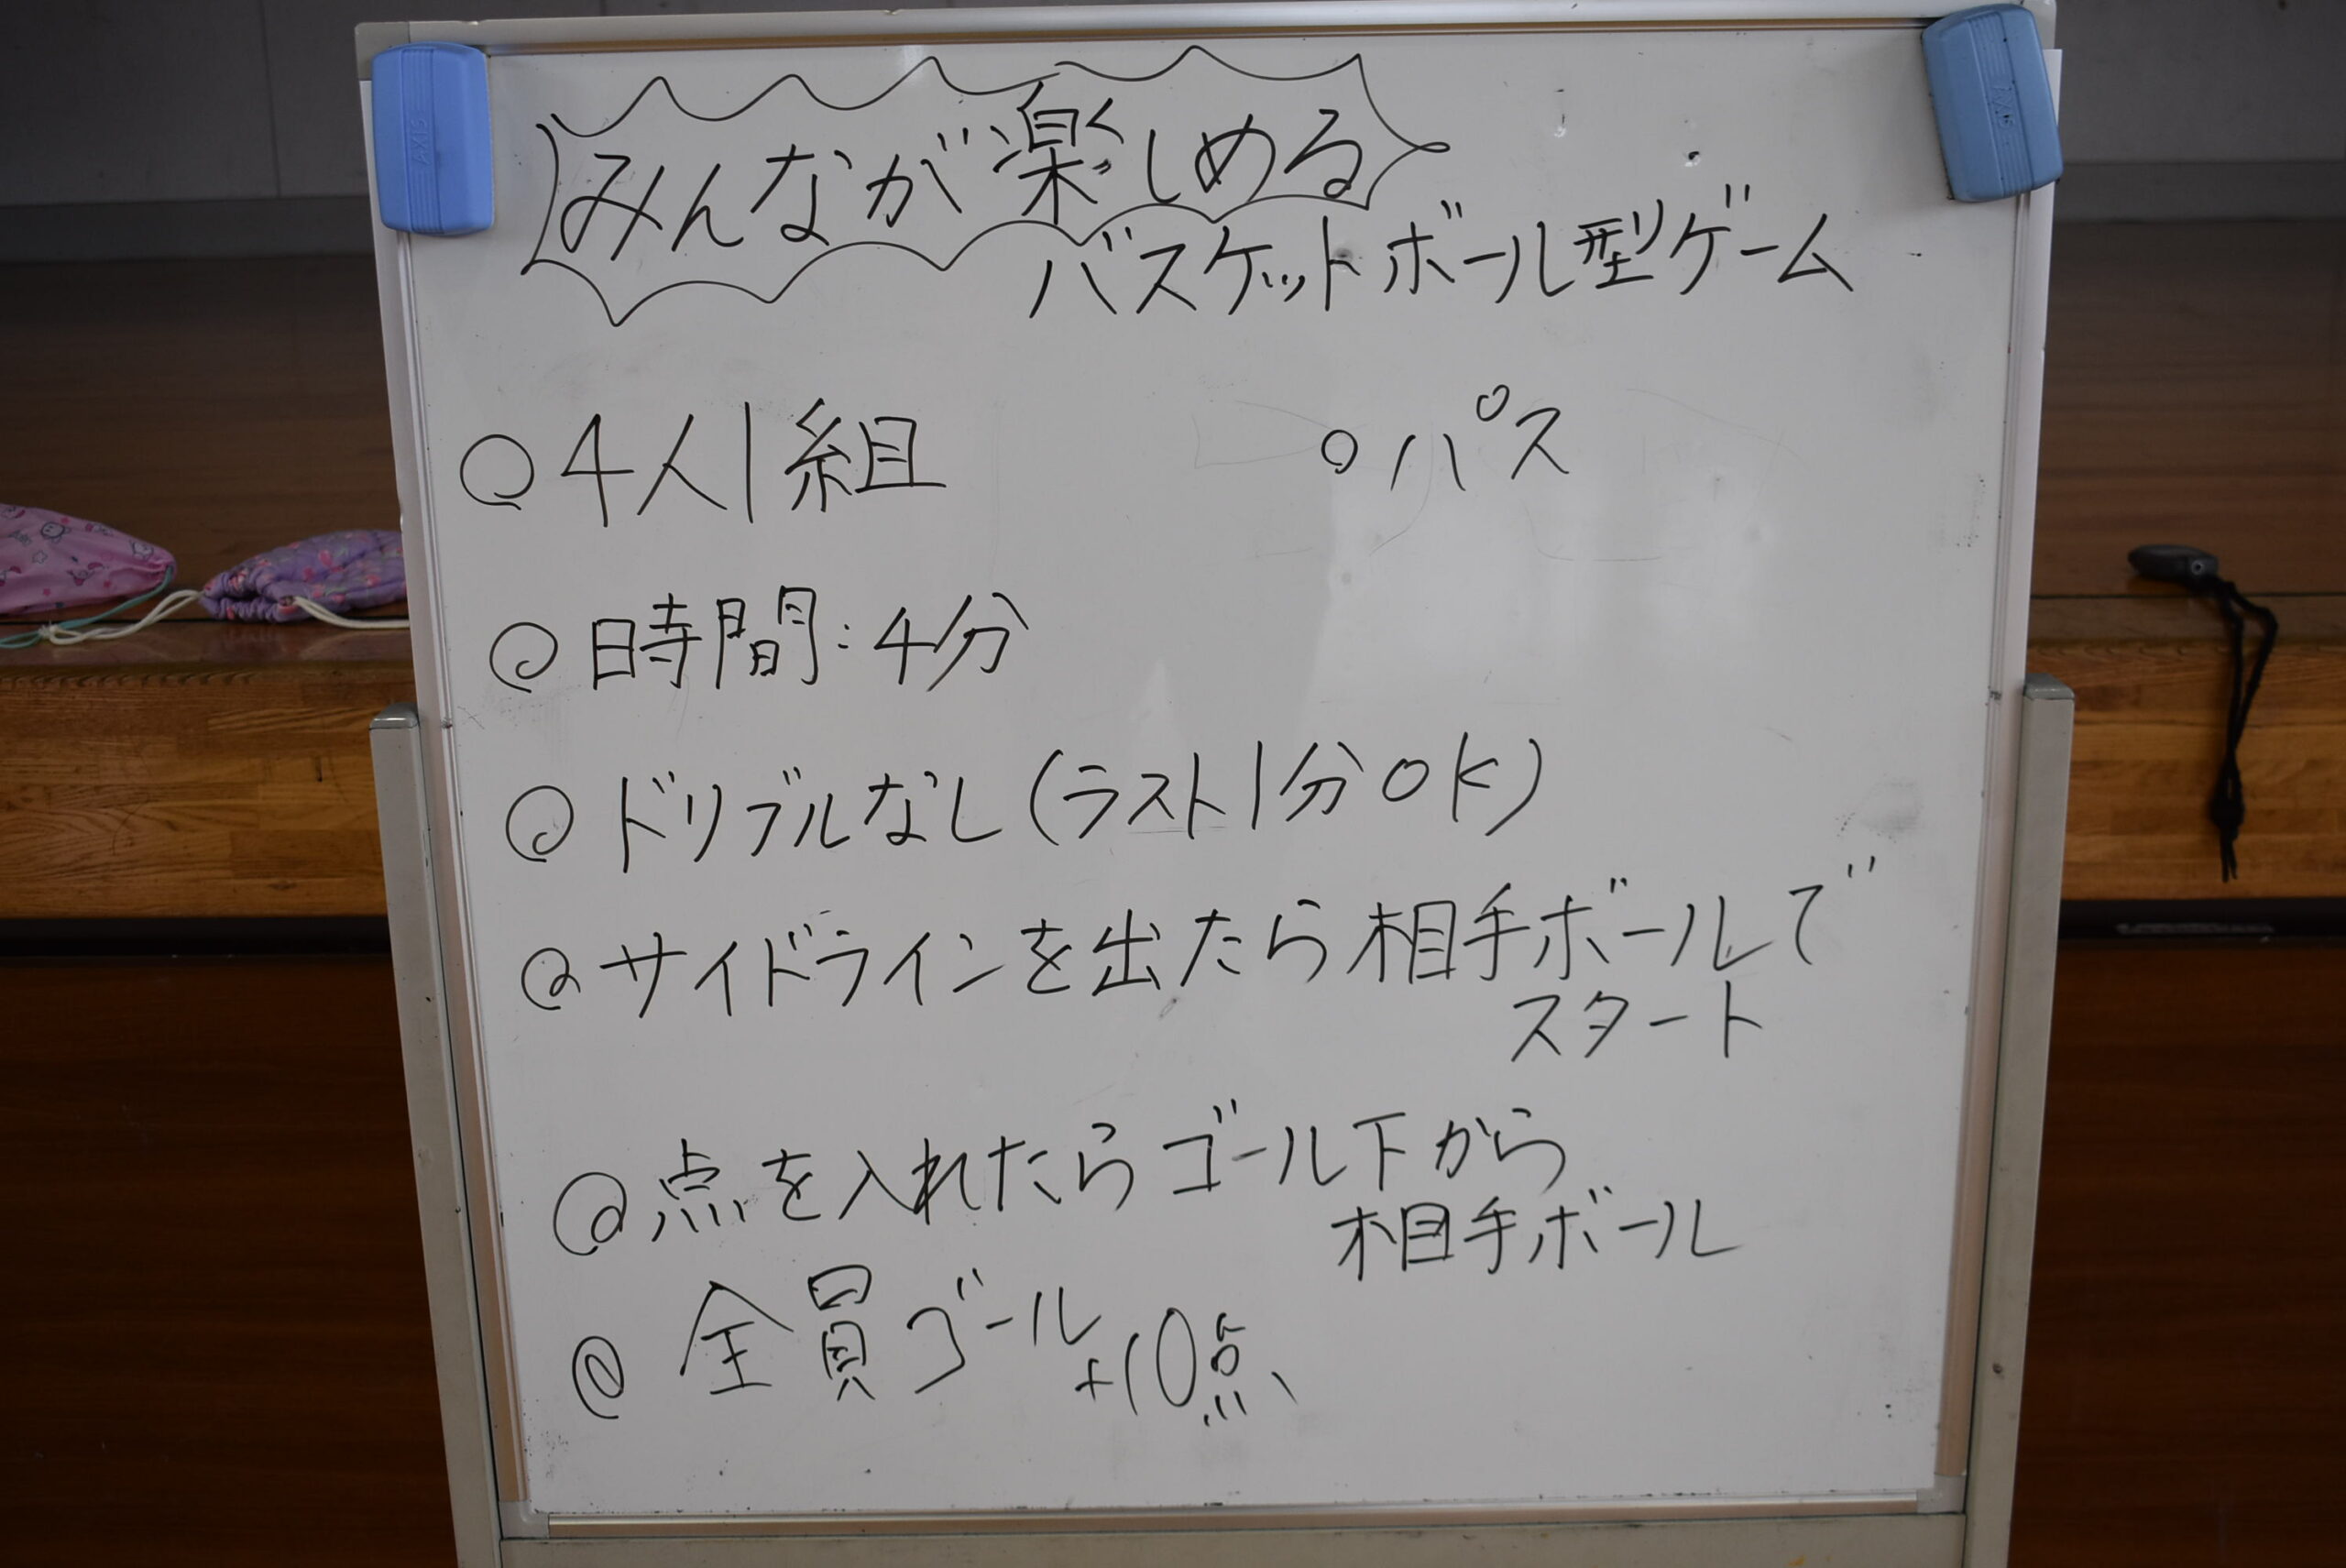 みんなが楽しめる
バスケットボール型ゲーム
○4人1組
○パス
◎時間:4分
◎ドリブルなし(ラスト1分OK)
◎サイドラインを出たら相手ボールで
スタート
◎点を入れたらゴール下から
相手ボール
◎全員ゴール+10点
AXIS
AXIS